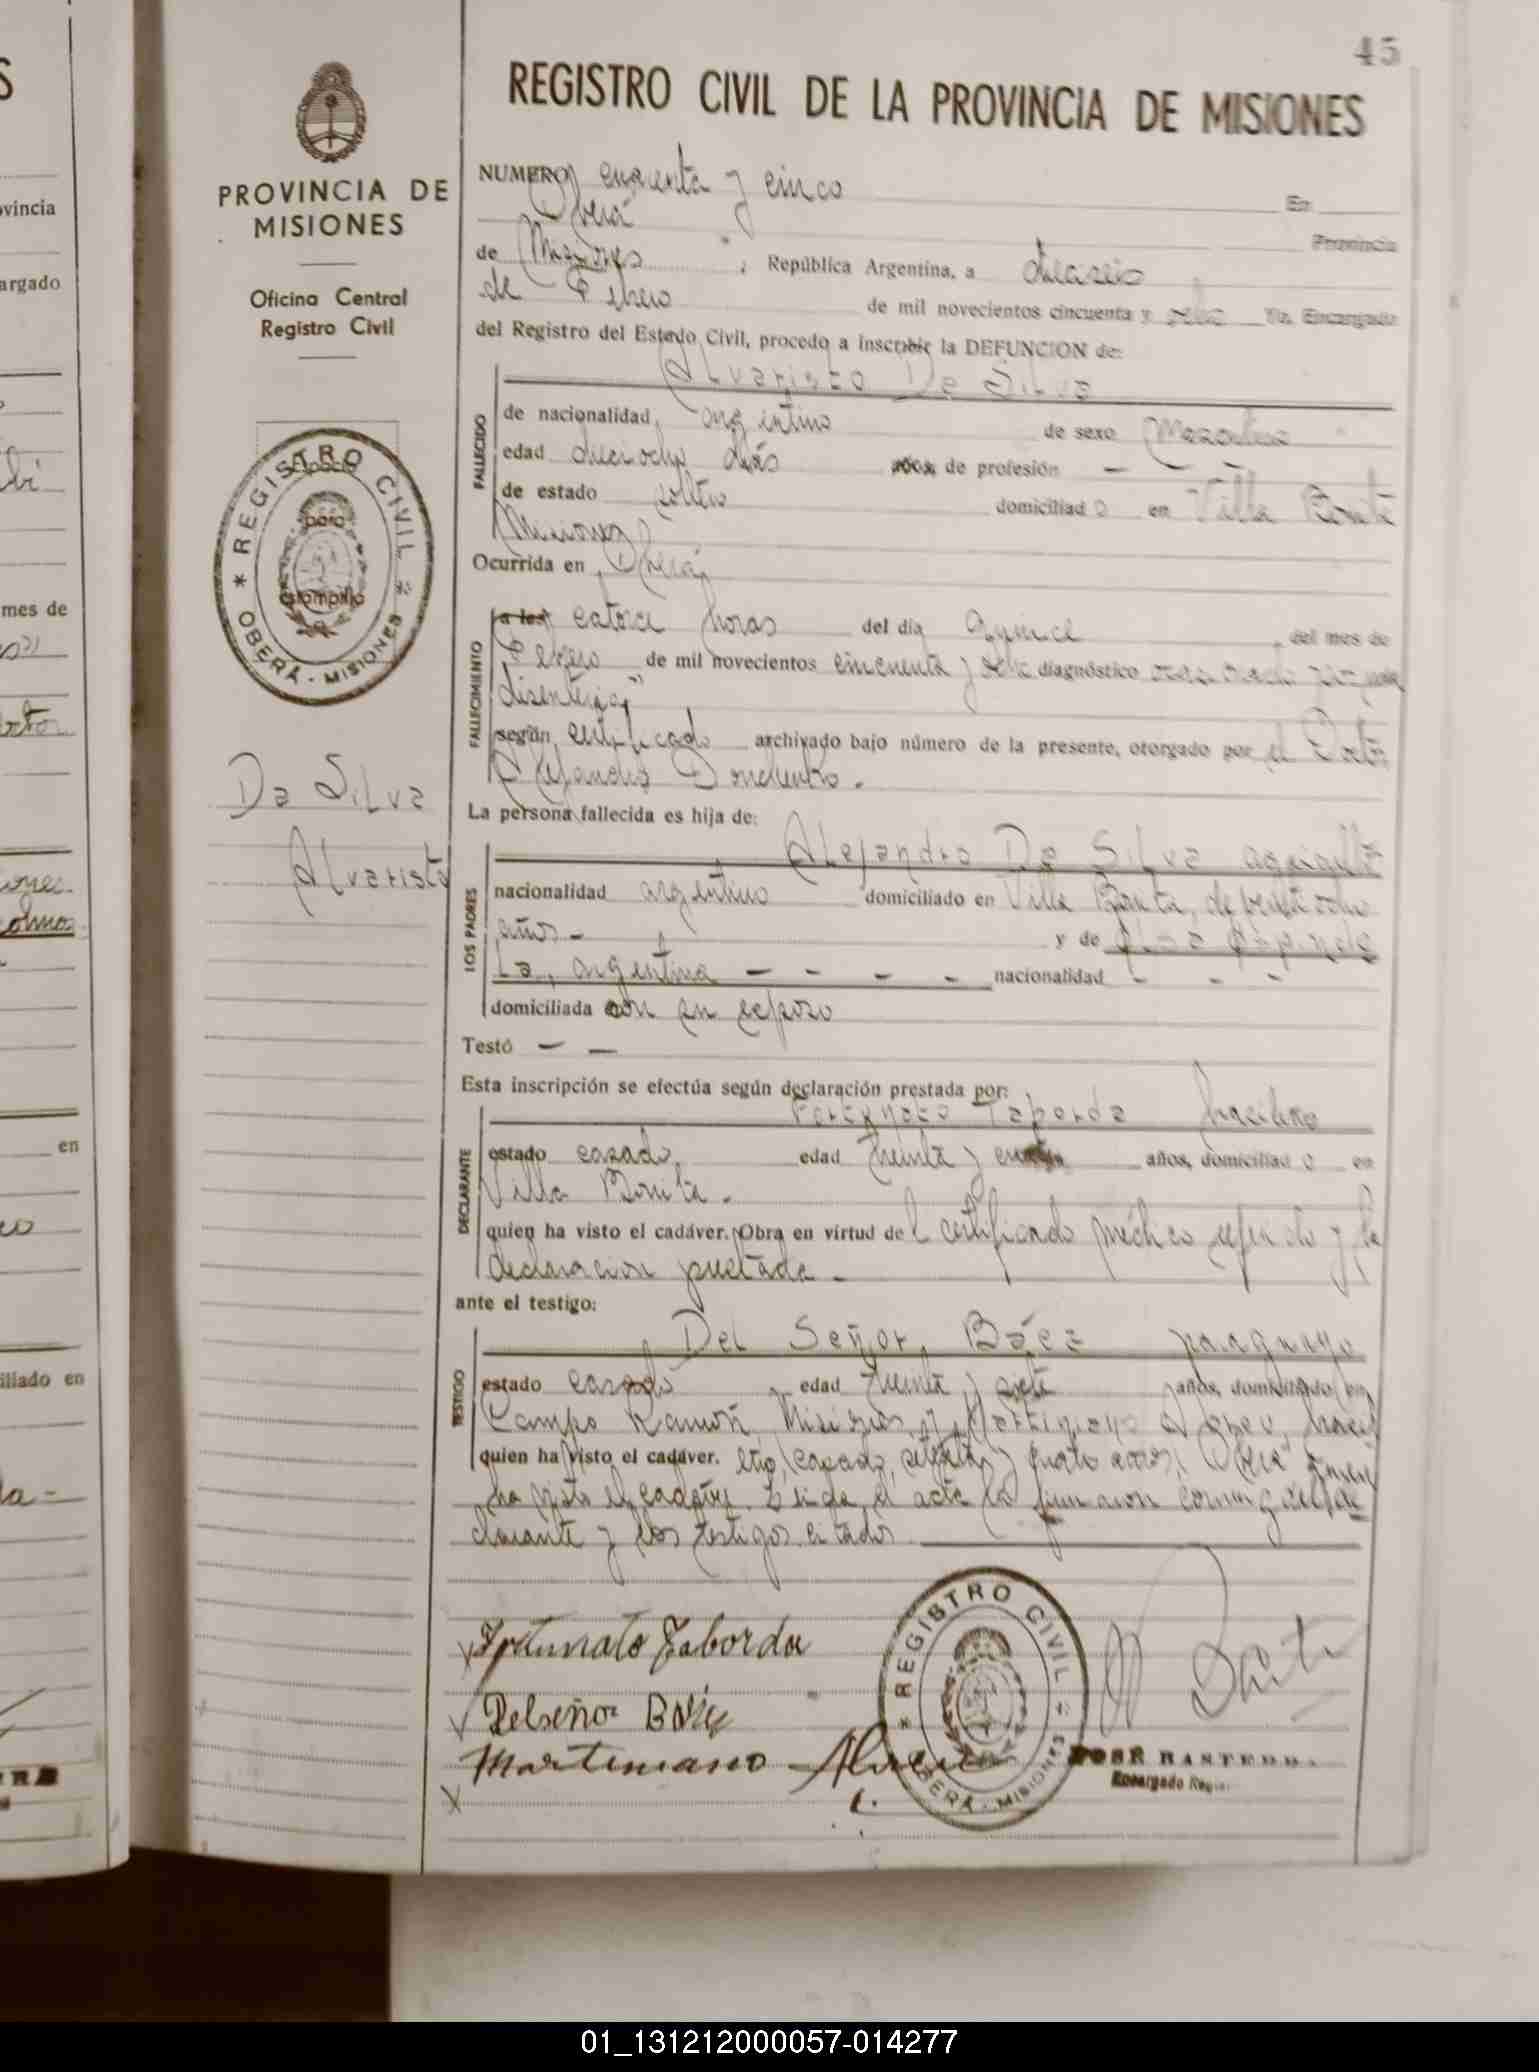 45
REGISTRO CIVIL DE LA PROVINCIA DE MISIONES
PROVINCIA DE
MISIONES
Oficina Central
Registro Civil
REGISTRO CIVIL
OBERÁ - MISIONES
Espacio
para
estampilla
Da Silva
Alvaristo
NUMERO cuarenta y cinco En
Oberá Provincia
de Misiones, República Argentina, a dieciseis
de Febrero de mil novecientos cincuenta y ocho Yo, Encargado
del Registro del Estado Civil, procedo a inscribir la DEFUNCION de:
Alvaristo Da Silva
FALLECIDO
de nacionalidad argentino de sexo Masculino
edad dieciocho días años de profesión — — —
de estado soltero domiciliado en Villa Bonita
Misiones
Ocurrida en Oberá
FALLECIMIENTO
a las catorce horas del día quince del mes de
Febrero de mil novecientos cincuenta y ocho diagnóstico por
disenteria
según certificado archivado bajo número de la presente, otorgado por el Doctor
Alejandro
La persona fallecida es hija de:
LOS PADRES
Alejandro Da Silva
nacionalidad argentino domiciliado en Villa Bonita, de veintiocho
años - y de
argentina — - - - nacionalidad - - -
domiciliada con su esposo
Testó — —
Esta inscripción se efectúa según declaración prestada por:
DECLARANTE
Fortunato Taborda brasilero
estado casado, edad treinta y años, domiciliado en
Villa Bonita.
quien ha visto el cadáver. Obra en virtud del certificado médico referido y la
declaracion prestada -
ante el testigo:
TESTIGO
Del Señor Báez paraguayo
estado casado edad treinta y siete años, domiciliado en
Campo Ramón, Misiones y Martiniano
quien ha visto el cadáver. casado, setenta y cuatro años, Oberá quien
ha visto el cadáver. Leida el acta la firmaron conmigo el de
clarante y los testigos citados
Fortunato Taborda
Delseñor Báez
Martiniano
REGISTRO CIVIL
OBERÁ - MISIONES
JOSÉ
Encargado
vincia
argado
mes de
en
iliado en
01_131212000057-014277